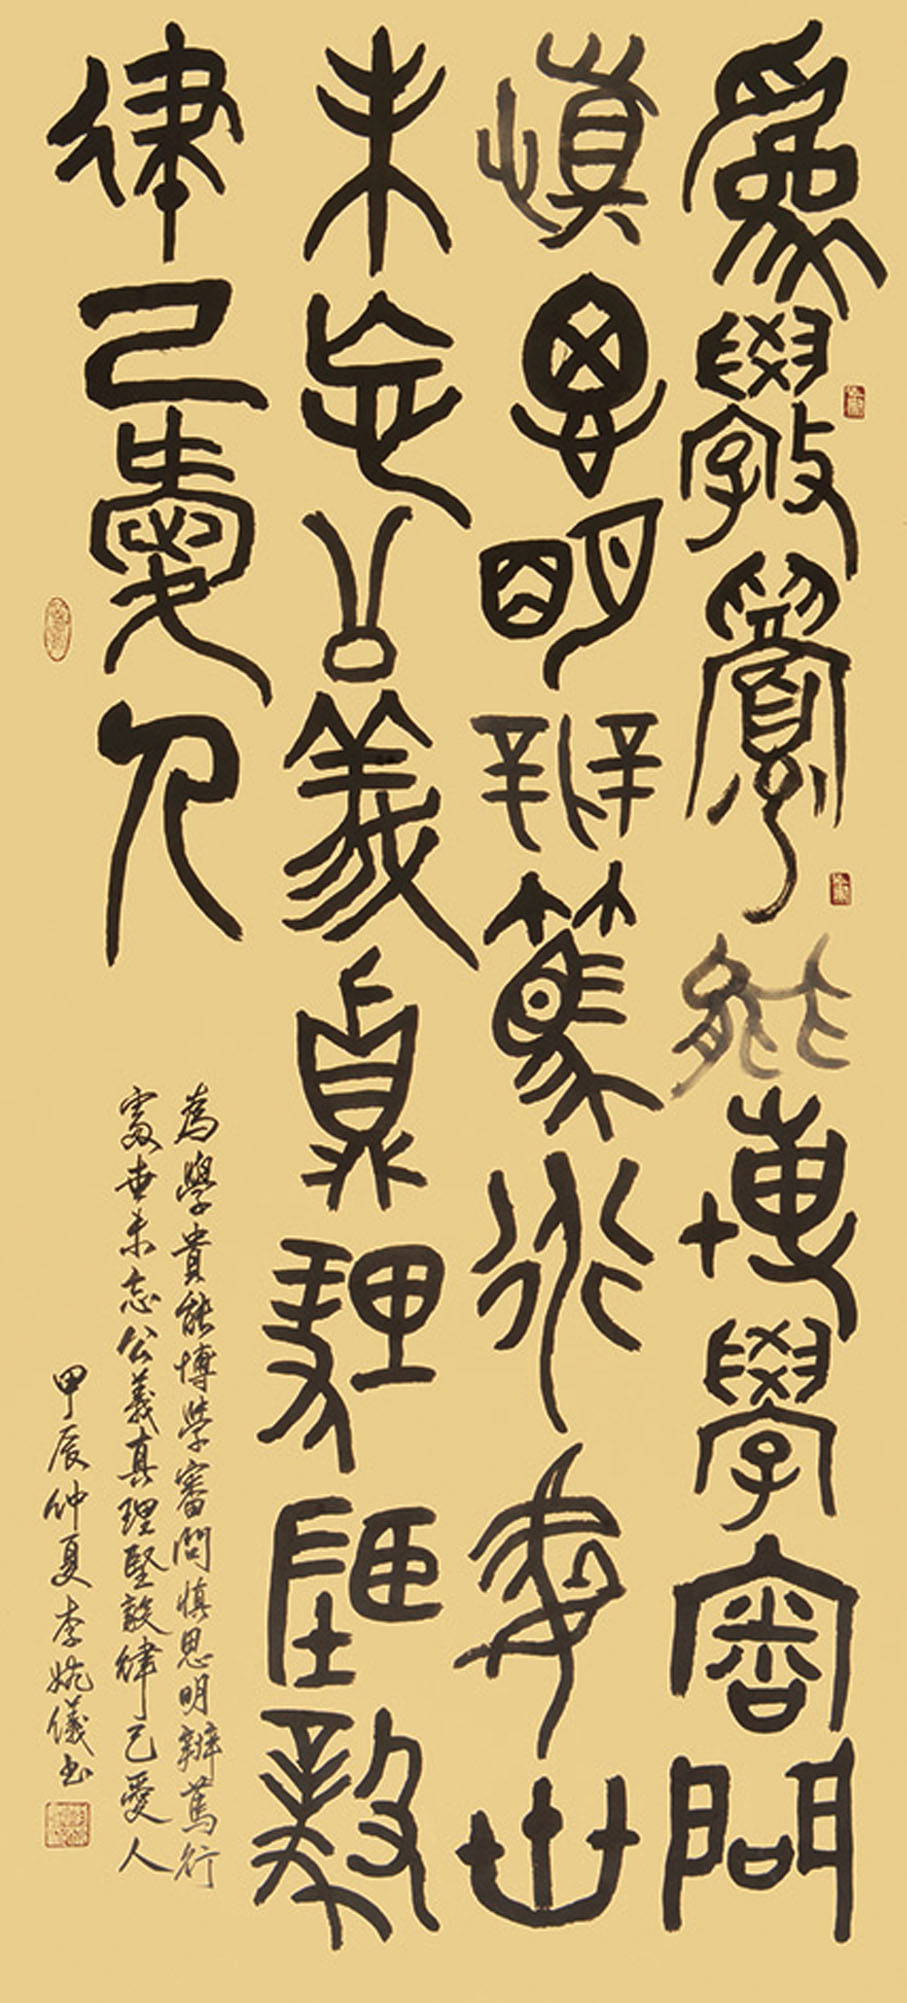 為斆貴能博學審問
慎思明辨篤行處世
未忘公義真理堅毅
律己愛人
為學貴能博學審問慎思明辨篤行
處世未忘公義真理堅毅律己愛人
甲辰仲夏李婉儀書